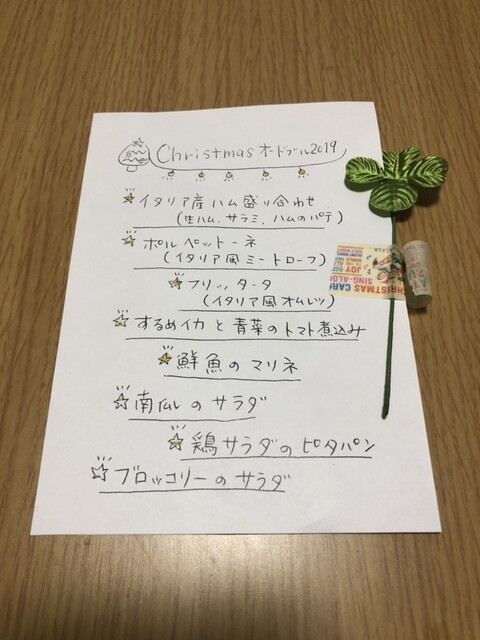 Christmas オードブル2019
イタリア産ハム盛り合わせ
(生ハム、サラミ、ハムのパテ)
ポルペットーネ
(イタリア風ミートローフ)
フリッタータ
(イタリア風オムレツ)
するめイカと青菜のトマト煮込み
鮮魚のマリネ
南瓜のサラダ
鶏サラダのピタパン
ブロッコリーのサラダ
JOY
CHRISTMAS CARO
SING-ALO